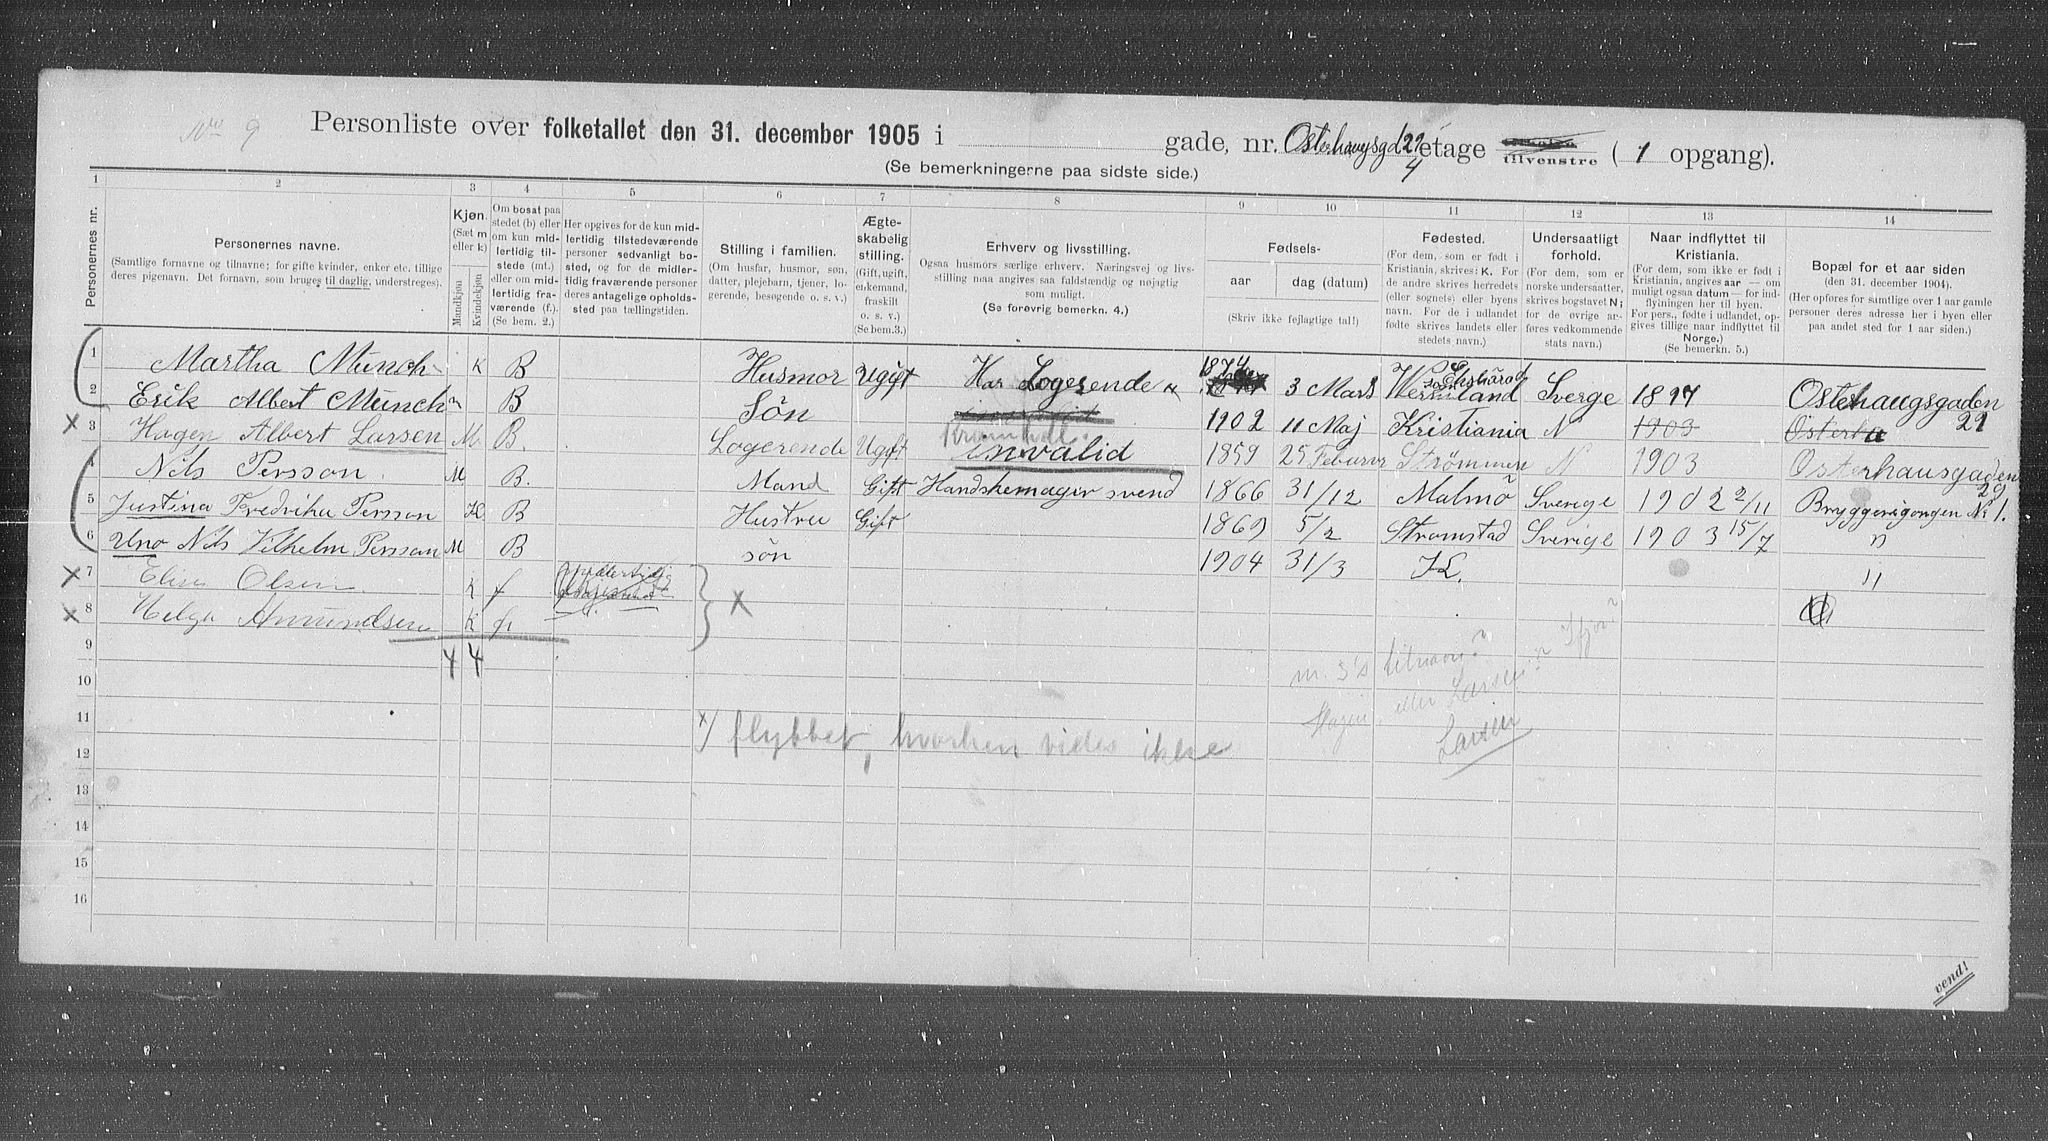 Nro 9 Personliste over folketallet den 31. december 1905 i gade, nr. Osterhaugsgd 29 4 etage tilvenstre ( 1 opgang).
(Se bemerkningerne paa sidste side.)
1 2 3 4 5 6 7 8 9 10 11 12 13 14
Personernes nr.
Personernes navne.
(Samtlige fornavne og tilnavne; for gifte kvinder, enker etc. tillige
deres pigenavn. Det fornavn, som bruges til daglig, understreges).
Kjøn.
(Sæt m
eller k)
Mandkjøn
Kvindekjøn
Om bosat paa
stedet (b) eller
om kun mid-
lertidig til-
stede (mt.)
eller om mid-
lertidig fra-
værende (f.).
(Se bem. 2.)
Her opgives for de kun mid-
lertidig tilstedeværende
personer sedvanlig bo-
sted, og for de midler-
tidig fraværende personer
deres antagelige opholds-
sted paa tællingstiden.
Stilling i familien.
(Om husfar, husmor, søn,
datter, plejebarn, tjener, lo-
gerende, besøgende o. s. v.)
Ægte-
skabelig
stilling.
(Gift, ugift,
enkemand,
fraskilt
o. s. v.)
(Se bem.3.)
Erhverv og livsstilling.
Ogsaa husmors særlige erhverv. Næringsvej og livs-
stilling maa angives saa fuldstændig og nøjagtig
som muligt.
(Se forøvrig bemerkn. 4.)
Fødsels-
aar dag (datum)
(Skriv ikke fejlagtige tal!)
Fødested.
(For dem, som er født i
Kristiania, skrives: K. For
de andre skrives herredets
(eller sognets) eller byens
navn. For de i udlandet
fødte skrives landets eller
stedets navn.)
Undersaatligt
forhold.
(For dem, som er
norske undersaatter,
skrives bogstavet N;
for de øvrige an-
føres vedkommende
stats navn.)
Naar indflyttet til
Kristiania.
(For dem, som ikke er født i
Kristiania, angives aar — om
muligt ogsaa datum — for ind-
flytningen her til byen.
For pers., fødte i udlandet, op-
gives tillige naar indflyttet til
Norge.)
(Se bemerkn. 5.)
Bopæl for et aar siden
(den 31. december 1904).
(Her opføres for samtlige over 1 aar gamle
personer deres adresse her i byen eller
paa andet sted for 1 aar siden.)
1 Martha Münch K B Husmor Ugift Har Logerende 1874 3 Mars Wermland Sverge 1897 Osterhaugsgaden 29
2 Erik Albert Münch m B Sön 1902 11 Maj Kristiania N 1903 Osterha
x 3 Hagen Albert Larsen M. B. Logerende Ugift invalid 1859 25 Feburar Strömmen N 1903 Osterhausgaden 29
4 Nils Persson. M B. Mand Gift Handskemager svend 1866 31/12 Malmö Sverige 1902 2/11 Bryggerigongen No 1.
5 Justina Fredrika Persson K B Hustru Gift 1869 5/2 Stromstad Sverige 1903 15/7 "
6 Uno Nils Vilhelm Persson M B sön 1904 31/3 K. "
x 7 Elise Olsen K f x
x 8 Helga Amundsen K f
9
4 4
10 nr. 3's tilnavn? Ifjor?
11 Hagen eller Larsen?
Larsen
x) flyttet, hvorhen vides ikke
12
13
14
15
16
vend!